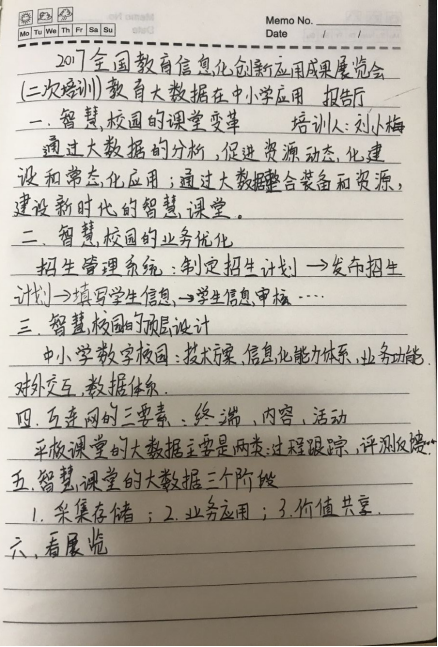 Memo No.
Mo Tu We Th Fr Sa Su
Date / /
2017全国教育信息化创新应用成果展览会
(二次培训)教育大数据在中小学应用 报告厅
一.智慧校园的课堂变革 培训人:刘小梅
通过大数据的分析,促进资源动态化建
设和常态化应用;通过大数据整合装备和资源,
建设新时代的智慧课堂。
二.智慧校园的业务优化
招生管理系统:制定招生计划→发布招生
计划→填写学生信息→学生信息审核……
三.智慧校园的顶层设计
中小学数字校园:技术方案、信息化能力体系、业务功能、
对外交互、数据体系.
四.互连网的三要素:终端、内容、活动
平板课堂的大数据主要是两类:过程跟踪,评测反馈…
五.智慧课堂的大数据三个阶段
1.采集存储;2.业务应用;3.价值共享.
六、看展览